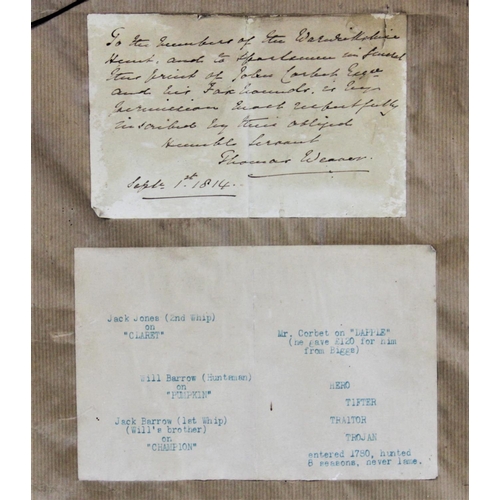 To the members of the Warwickshire
Hunt, and to Sportsmen in General
this print of John Corbet Esqr
and his Fox hounds, is by
permission most respectfully
inscribed by their obliged
Humble Servant
Thomas Weaver.
Sept. 1st. 1814.
Jack Jones (2nd Whip)
on
"CLARET"
Mr. Corbet on "DAPPLE"
(he gave £120 for him
from Biggs)
Will Barrow (Huntsman)
on
"PIMPKIN"
HERO
TIFTER
Jack Barrow (1st Whip)
(Will's brother)
on
"CHAMPION"
TRAITOR
TROJAN
entered 1780, hunted
8 seasons, never lame.